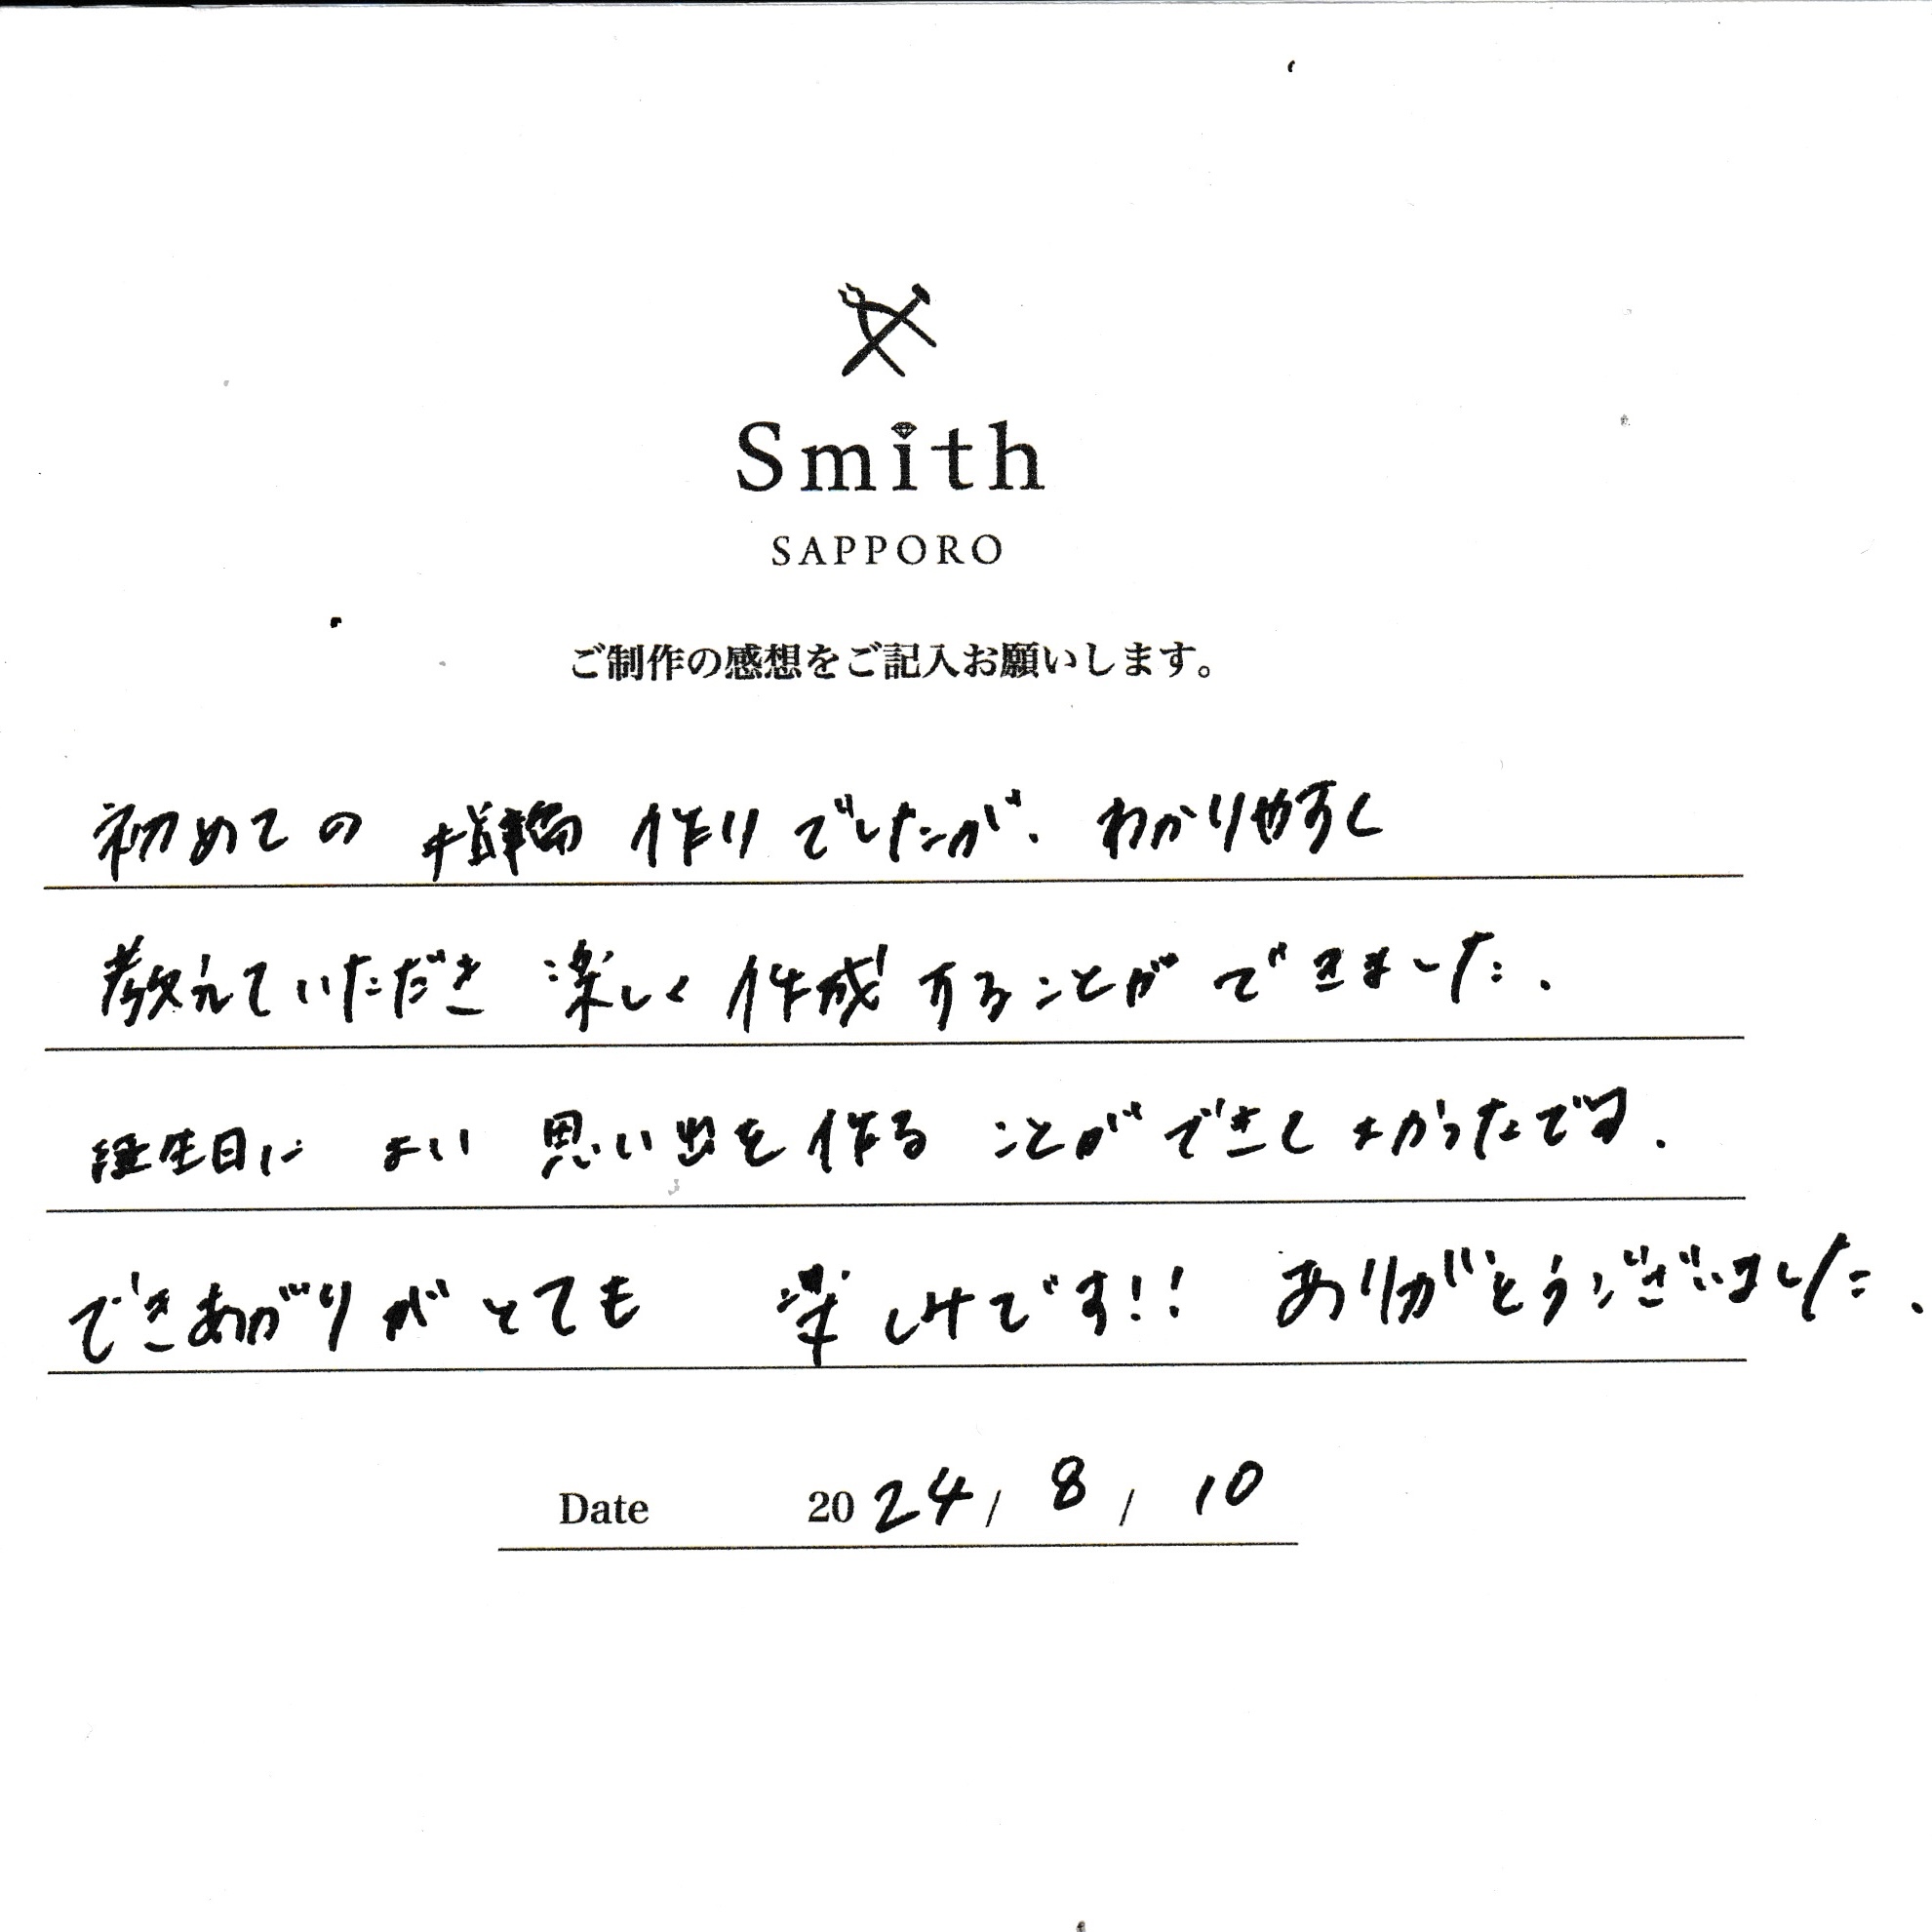 Smith
SAPPORO
ご制作の感想をご記入お願いします。
初めての 指輪 作りでしたが、わかりやすく
教えていただき 楽しく 作成することができました.
誕生日に よい 思い出を作る ことができてよかったです.
できあがりがとても 楽しみです!! ありがとうございました.
Date 2024/8/10